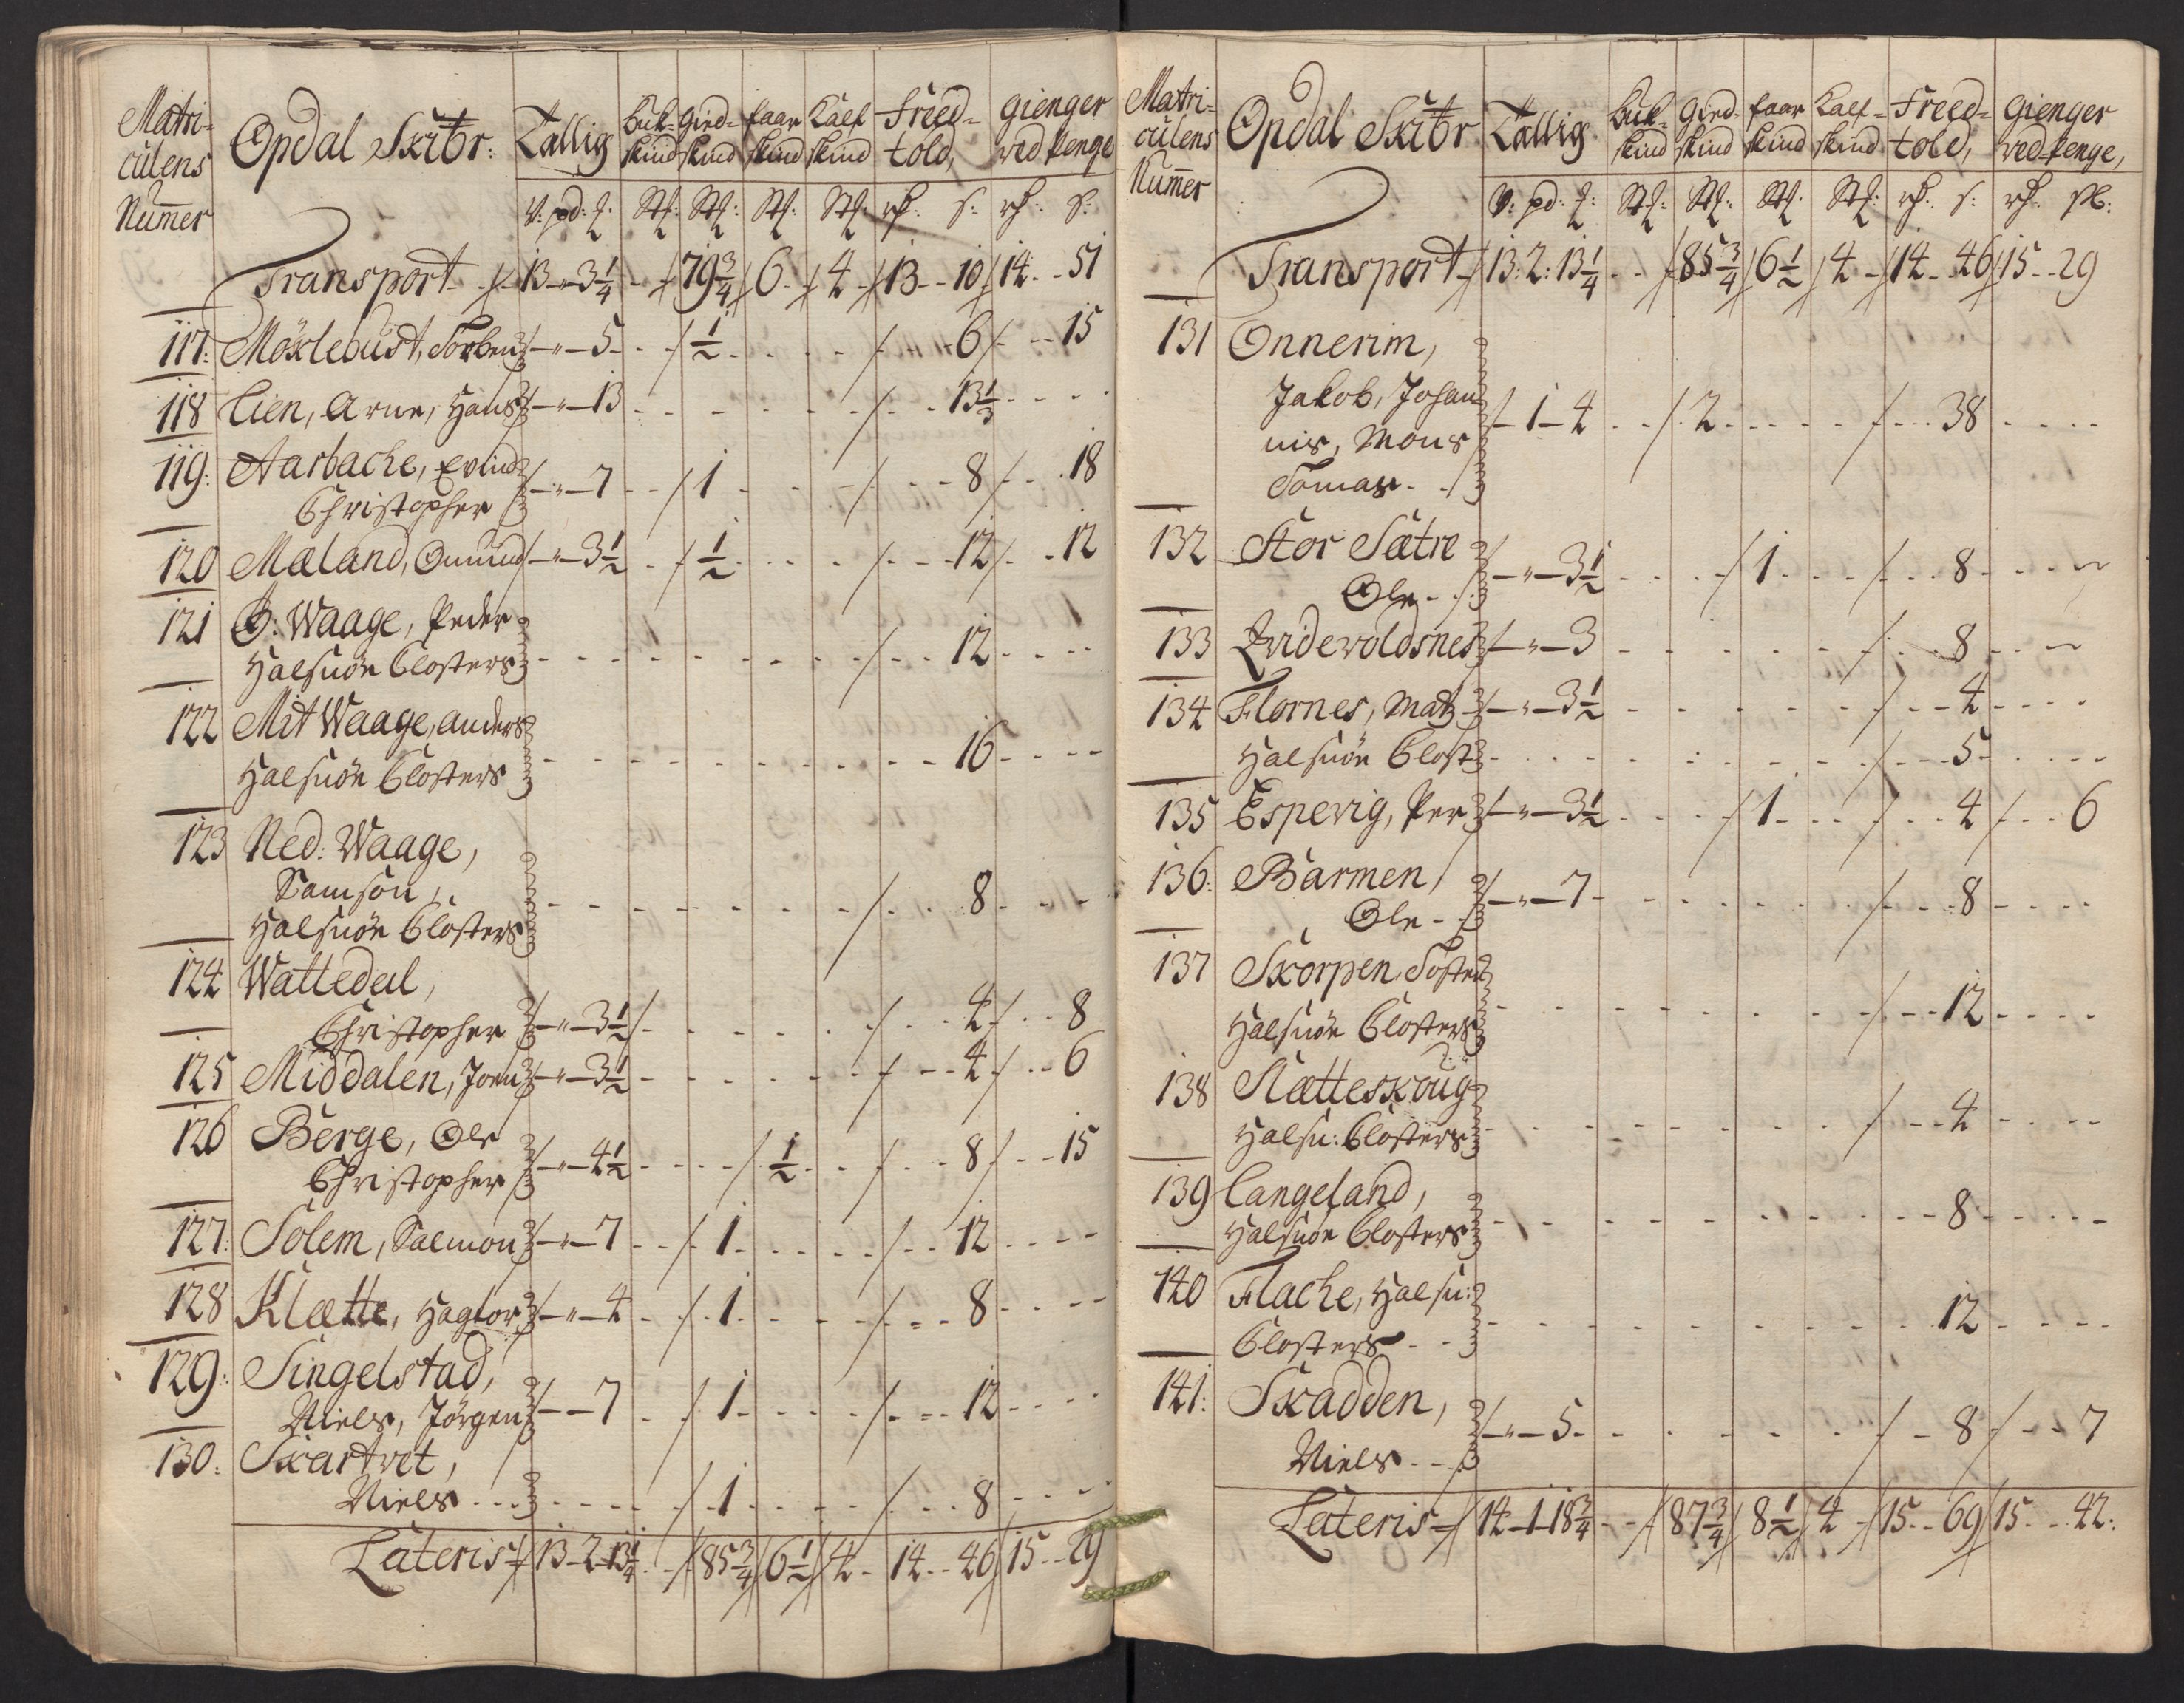 Matri-
culens
Nummer
Opdal Skibr:
Tallig
Buk-
skind
Gied-
skind
faar
skind
Kalf
skind
Treed-
told,
gienger
ved Penge
V: pd: ℔:
Stk: Stk: Stk: Stk: rd: s: rd: s:
Transport 13 - 3 1/4 79 3/4 6 4 13 - 10 14 - 51
117: Möxlebust, Torben - " - 5 1/2 6 15
118 Lien, Arne, Hans - " - 13 13 1/3
119: Aarbache, Evind
Christopher - " - 7 1 8 18
120 Mæland, Omund - " - 3 1/2 1/2 12 12
121 Ö: Waage, Peder
Halsnön Closters 12
122 Mit Waage, Anders
Halsnön Closters 16
123 Ned: Waage,
Samson,
Halsnön Closters 8
124 Wattedal,
Christopher - " - 3 1/2 4 8
125 Middalen, Joen - " - 3 1/2 4 6
126 Berge, Ole
Christopher - " - 4 1/2 1/2 8 15
127: Solem, Salmon - " - 7 1 12
128 Klætte, Hagtor - " - 4 1 8
129: Singelstad,
Niels, Jörgen - - 7 1 12
130: Skartvet,
Niels 1 8
Lateris 13 - 2 - 13 1/4 85 3/4 6 1/2 4 14 - 46 15 - 29
Matri-
culens
Nummer
Opdal Skibr
Tallig
Buk-
skind
Gied-
skind
faar
skind
Kalf-
skind
Treed-
told,
gienger
ved Penge,
V: pd: ℔:
Stk: Stk: Stk: Stk: rd: s: rd: sk:
Transport 13: 2: 13 1/4 85 3/4 6 1/2 4 14 - 46 15 - 29
131 Onnerim,
Jakob, Johan
nis, Mons
Tomas - 1 - 4 2 38
132 Stor Sætre
Ole - " - 3 1/2 1 8
133 Qvidevoldsnes - " - 3 8
134 Flornes, Mats - " - 3 1/2 4
Halsnön Clost 5
135 Espevig, Per - " - 3 1/2 1 4 6
136: Barmen,
Ole - " - 7 8
137 Skorpen, Tosten
Halsnön Closters 12
138 Slætteskoug
Halsn: Closters 4
139 Langeland,
Halsnön Closters 8
140 Flache, Halsn:
Closters 12
141: Skadden,
Niels - " - 5 8 7
Lateris 14 - 1 - 18 3/4 87 3/4 8 1/2 4 15 - 69 15 - 42: